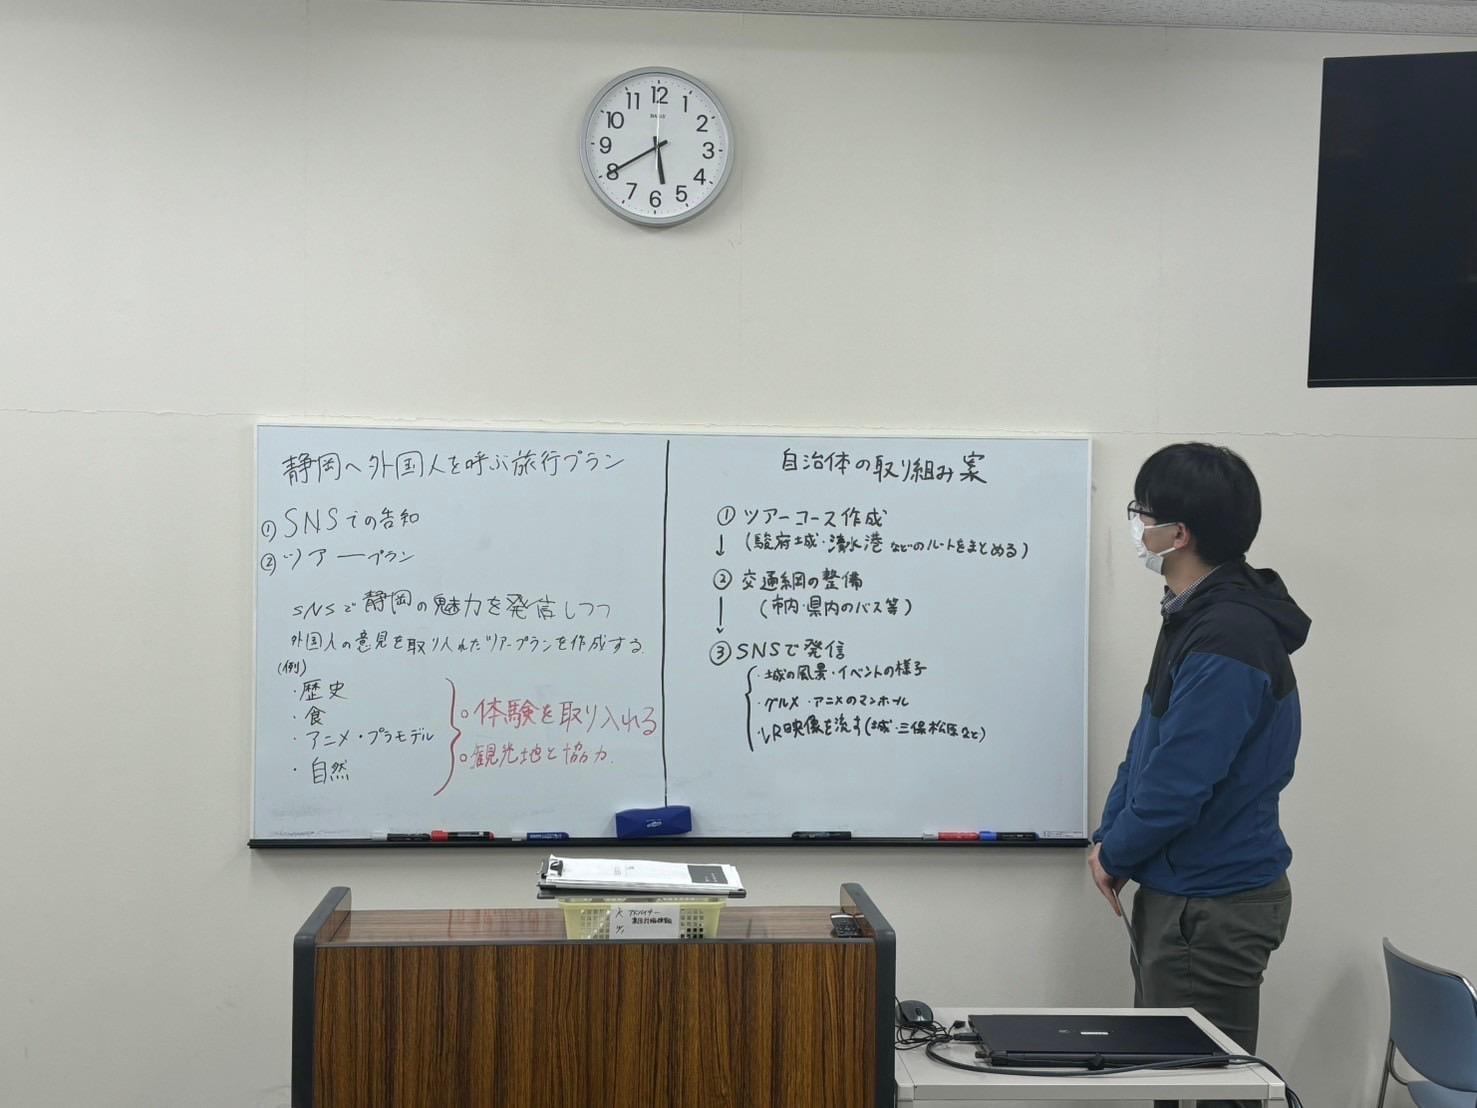 11 12 1
10 2
9 3
8 4
7 6 5
静岡へ外国人を呼ぶ旅行プラン
① SNSでの告知
② ツアープラン
SNSで静岡の魅力を発信しつつ
外国人の意見を取り入れたツアープランを作成する.
(例)
・歴史
・食
・アニメ・プラモデル
・自然
○体験を取り入れる
○観光地と協力.
自治体の取り組み案
① ツアーコース作成
↓ (駿府城・清水港 などのルートをまとめる)
② 交通網の整備
↓ (市内・県内のバス等)
③ SNSで発信
・城の風景・イベントの様子
・グルメ ・アニメのマンホール
・VR映像を流す(城・三保松原など)
アドバイザー